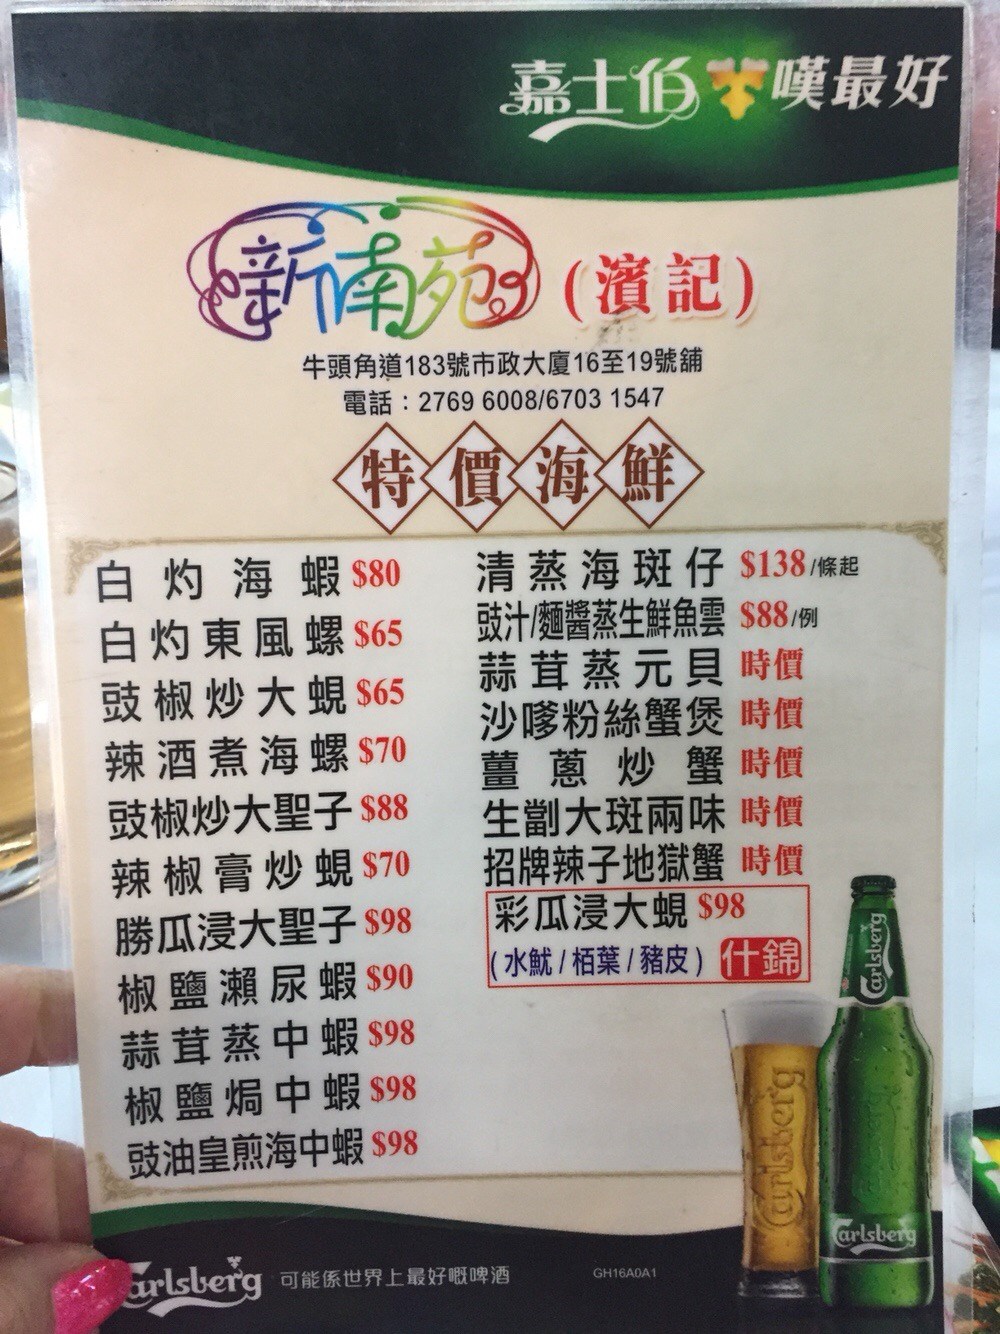 嘉士伯 嘆最好
新南苑 (濱記)
牛頭角道183號市政大廈16至19號舖
電話：2769 6008/6703 1547
特價海鮮
白灼海蝦 $80
白灼東風螺 $65
豉椒炒大蜆 $65
辣酒煮海螺 $70
豉椒炒大聖子 $88
辣椒膏炒蜆 $70
勝瓜浸大聖子 $98
椒鹽瀨尿蝦 $90
蒜茸蒸中蝦 $98
椒鹽焗中蝦 $98
豉油皇煎海中蝦 $98
清蒸海斑仔 $138/條起
豉汁/麵醬蒸生鮮魚雲 $88/例
蒜茸蒸元貝 時價
沙嗲粉絲蟹煲 時價
薑蔥炒蟹 時價
生劏大斑兩味 時價
招牌辣子地獄蟹 時價
彩瓜浸大蜆 $98
(水魷/栢葉/豬皮) 什錦
Carlsberg
Carlsberg
Carlsberg
Carlsberg 可能係世界上最好嘅啤酒
GH16A0A1